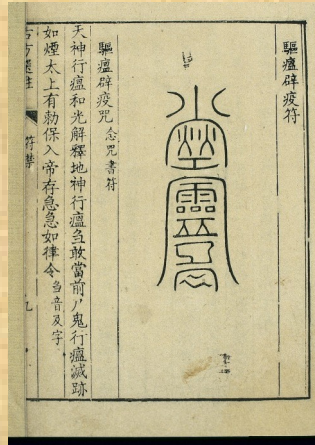 驅瘟辟疫符
驅瘟辟疫咒 念咒書符
天神行瘟和光解釋地神行瘟刍敢當前鬼行瘟滅跡
如煙太上有勅保入帝存急急如律令 刍音及字
古方選註 符 九